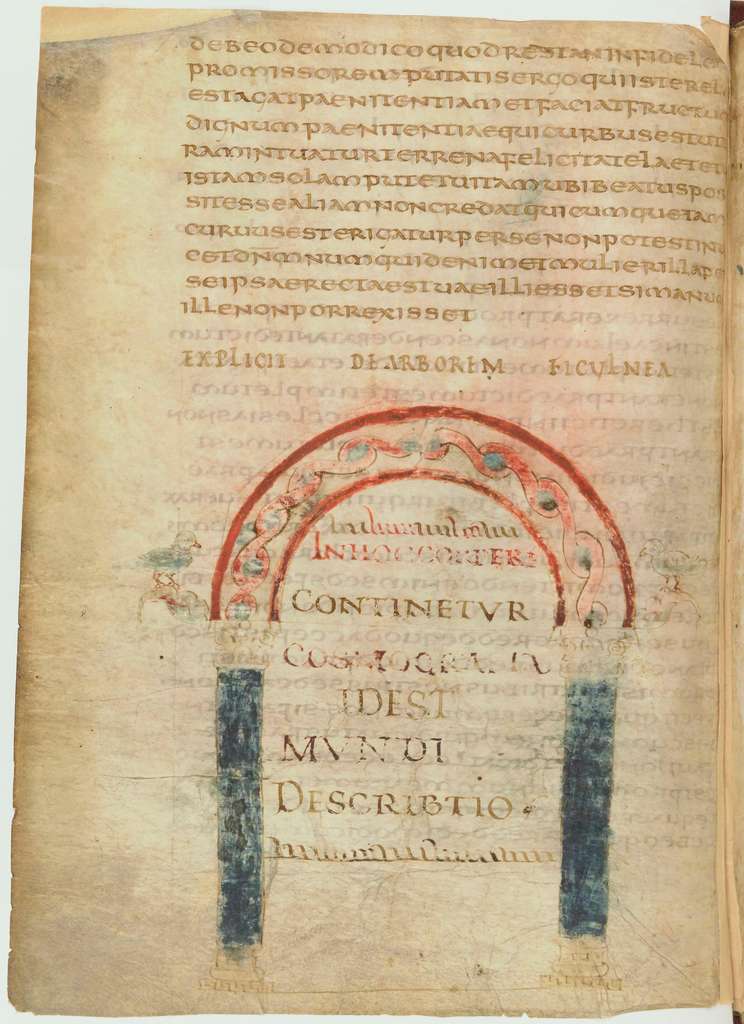 debeodemodicoquodrestaninfidele
promissoremputatisergoquiisterel
estagatpaenitentiametfaciatfructu
dignumpaenitentiaequicurbusestut
ramintuaturterrenafelicitatelaetet
istamsolamputetuitamubibeatuspos
sitessealiamnoncredatquicumqueiam
curuusesterigaturpersenonpotestinu
cetdnmnumquidenimetmulierillape
seipsaerectaestuaeilliessetsimanu
illenonporrexisset
EXPLICIT DEARBOREM FICULNEA
INHOCCORPERE
CONTINETVR
COSMOGRAFIA
IDEST
MVNDI
DESCRIBTIO